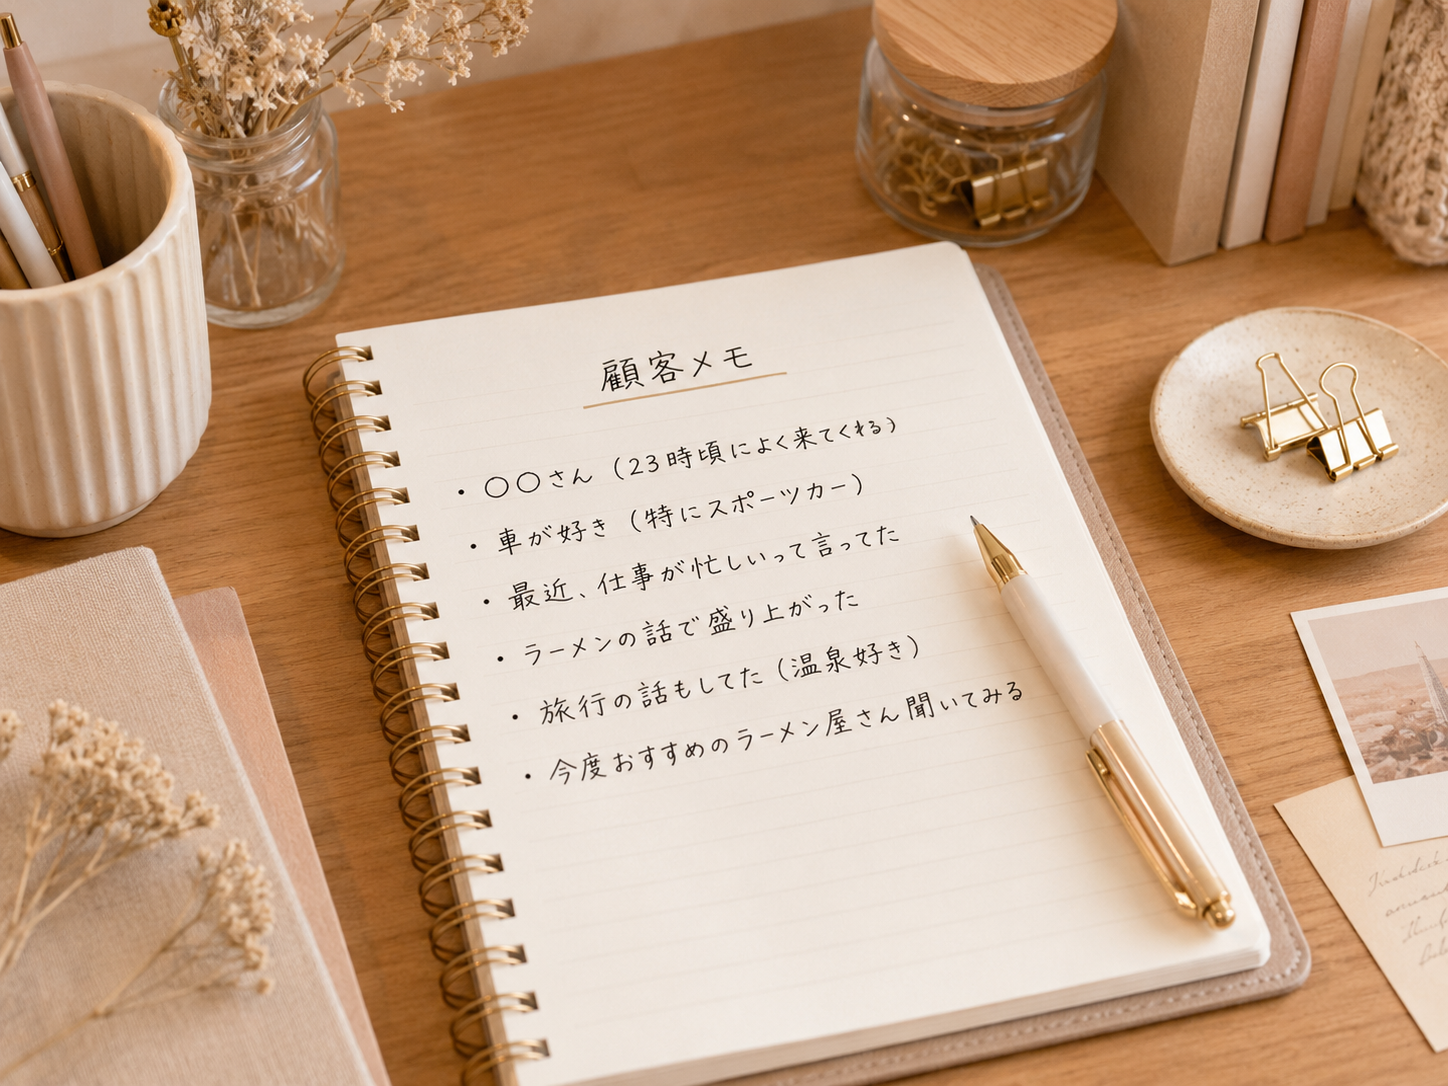 顧客メモ
・○○さん（23時頃によく来てくれる）
・車が好き（特にスポーツカー）
・最近、仕事が忙しいって言ってた
・ラーメンの話で盛り上がった
・旅行の話もしてた（温泉好き）
・今度おすすめのラーメン屋さん聞いてみる